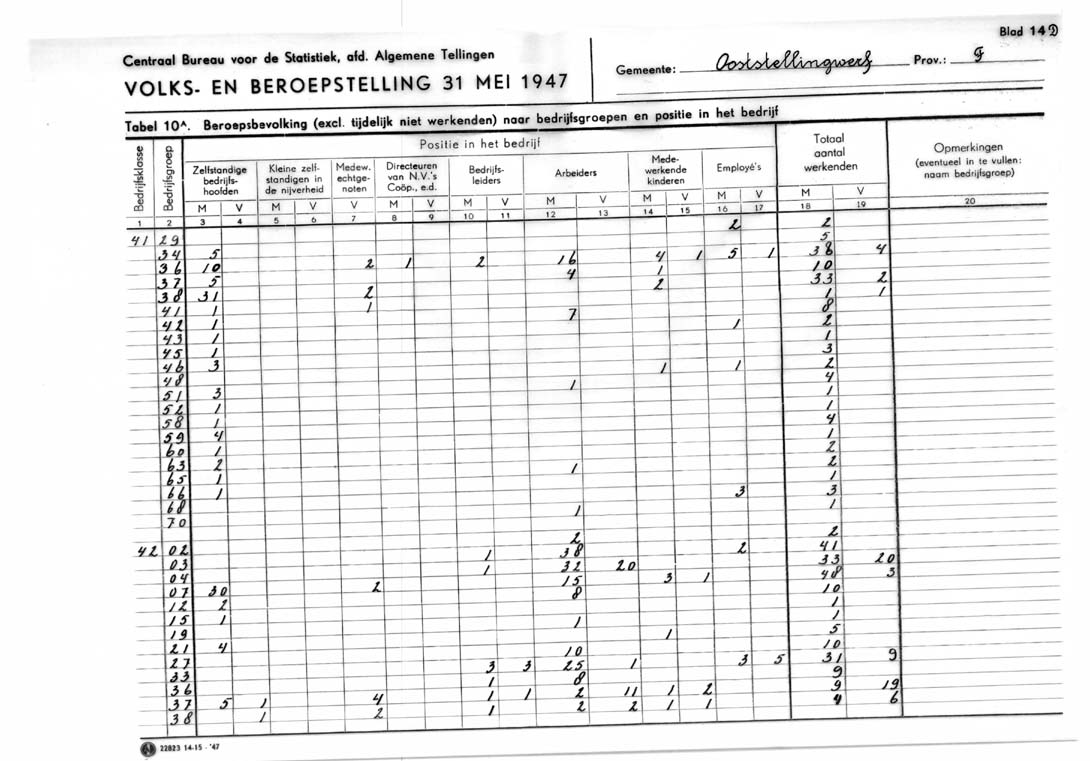 Blad 14D
Centraal Bureau voor de Statistiek, afd. Algemene Tellingen
VOLKS- EN BEROEPSTELLING 31 MEI 1947
Gemeente: Ooststellingwerf Prov.: F
Tabel 10A. Beroepsbevolking (excl. tijdelijk niet werkenden) naar bedrijfsgroepen en positie in het bedrijf
Bedrijfsklasse
Bedrijfsgroep
Positie in het bedrijf
Zelfstandige bedrijfs-hoofden
Kleine zelf-standigen in de nijverheid
Medew. echtge-noten
Directeuren van N.V.'s Coöp., e.d.
Bedrijfs-leiders
Arbeiders
Mede-werkende kinderen
Employé's
Totaal aantal werkenden
Opmerkingen (eventueel in te vullen: naam bedrijfsgroep)
M V M V V M V M V M V M V M V M V
1 2 3 4 5 6 7 8 9 10 11 12 13 14 15 16 17 18 19 20
41 29 2 2
34 5 5
36 10 2 1 2 16 4 1 5 1 38 4
37 5 4 1 10
38 31 2 2 33 2
41 1 1 1 1
42 1 7 8
43 1 1 2
45 1 1
46 3 3
48 1 1 2
51 3 1 4
52 1 1
58 1 1
59 4 4
60 1 1
63 2 2
65 1 1 2
66 1 1
68 3 3
70 1 1
42 02 2 2
03 1 38 2 41
04 1 32 20 33 20
07 30 2 15 3 1 48 3
12 2 8 10
15 1 1
19 1 1
21 4 1 5
27 10 10
33 3 3 25 1 3 5 31 9
36 1 8 9
37 5 1 4 1 1 2 11 1 2 9 19
38 1 2 1 2 2 1 1 4 6
22823 14-15 - '47